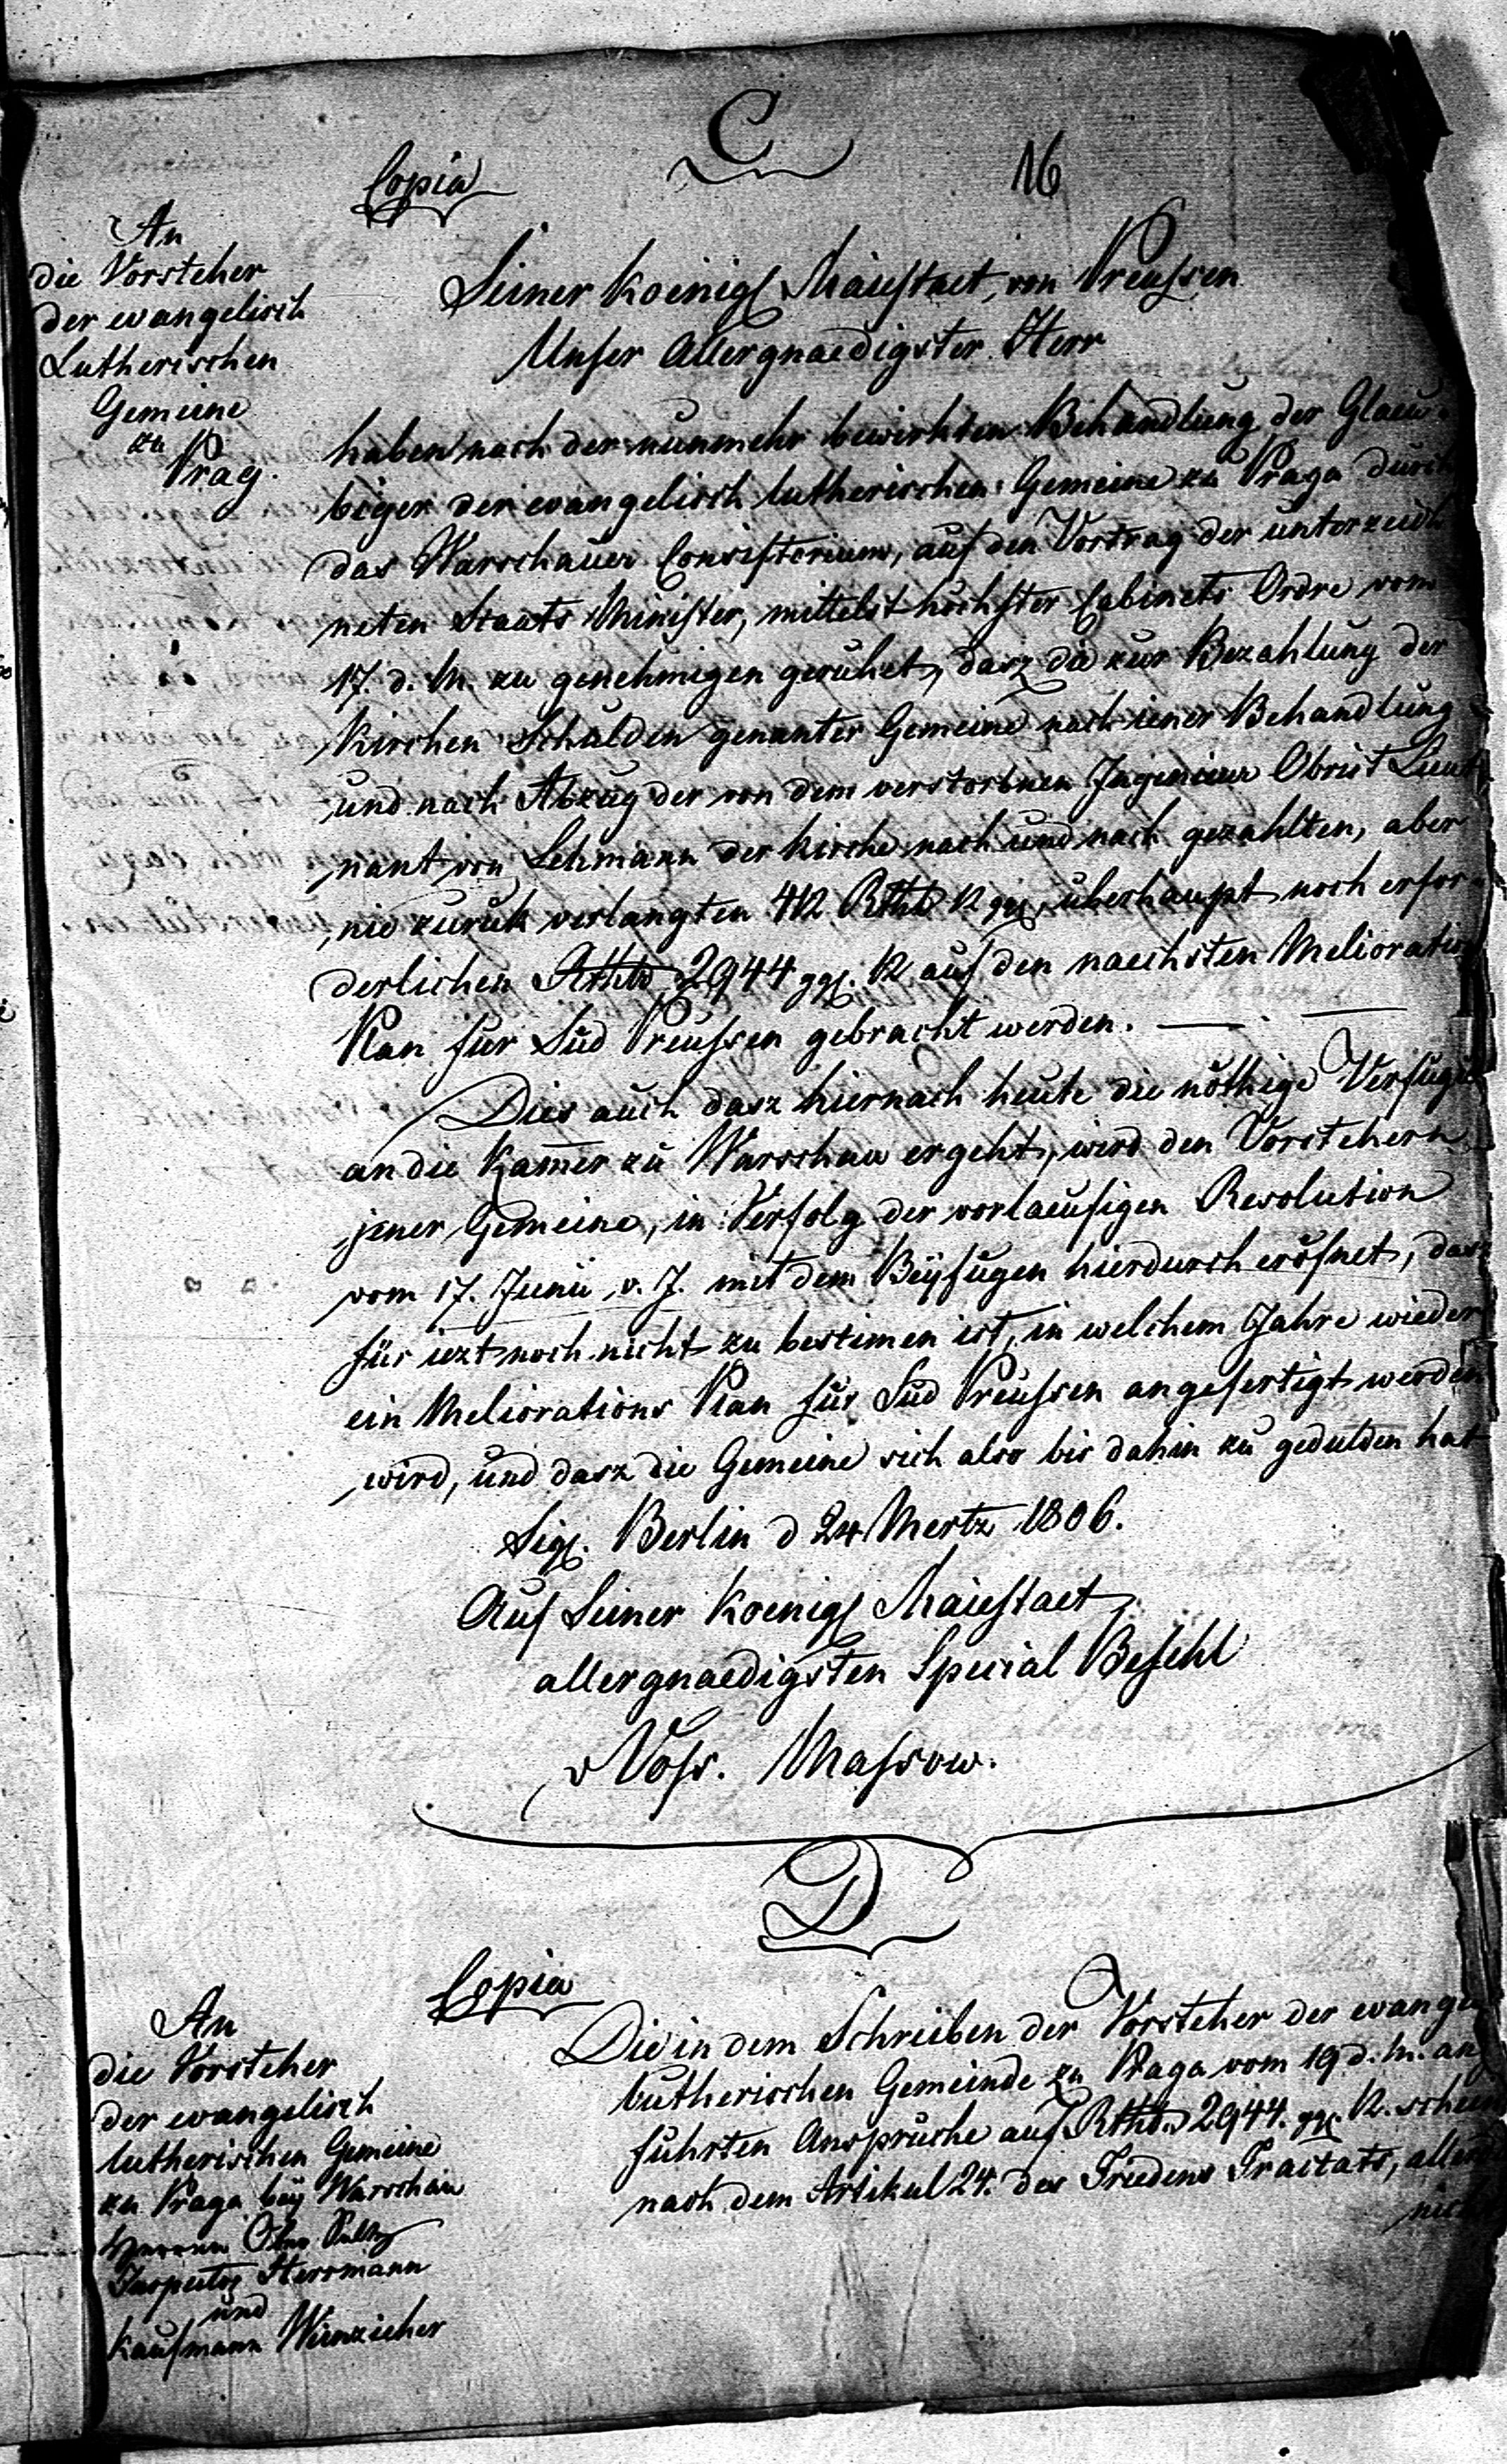 C
16
Copia
An
die Vorsteher
der evangelisch
Lutherischen
Gemeine
zu
Prag.
Seiner Koenigl Maiestaet, von Preussen
Unser Allergnaedigster Herr
haben nach der nunmehr bewirkten Behandlung der Glaeu-
biger der evangelisch lutherischen Gemeine zu Praga durch
das Warschauer Consistorium, auf den Vortrag der unterzeich
neten Staats Minister, mittelst höchster Cabinets Ordre vom
17. d. M. zu genehmigen geruhet, dasz die zur Bezahlung der
Kirchen Schulden genanter Gemeine nach iener Behandlung
und nach Abzug der von dem verstorbnen Ingenieur Obrist Lieut
nant von Lehmann der Kirche nach und nach gezahlten, aber
nie zurük verlangten 412 Rthl 12 ggl, überhaupt noch erfor
derlichen Rthlr 2944 ggl. 12 auf den naechsten Meliorations
Plan für Süd Preussen gebracht werden.
Dies auch dasz hiernach heute die nöthige Verfügu
an die Kamer zu Warschau ergeht, wird den Vorstehern
jener Gemeine, in Verfolg der vorlaeufigen Resolution
vom 17. Junii v. J. mit dem Beÿfügen hierdurch eröfnet, dasz
für iezt noch nicht zu bestimen ist, in welchem Jahre wieder
ein Meliorations Plan für Süd Preussen angefertigt werden
wird, und dasz die Gemeine sich also bis dahin zu gedulden hat
Sigl. Berlin d 24 Mertz 1806.
Auf Seiner Koenigl Maiestaet
allergnaedigsten Special Befehl
v Voss. Massow.
D
Copia
An
die Vorsteher
der evangelisch
lutherischen Gemeine
zu Praga beÿ Warschau
Herren
Inspector Herrmann
und
Kaufmann
Die in dem Schreiben der Vorsteher der evangel
lutherischen Gemeinde zu Praga vom 19 d. M. ang
führten Ansprüche auf Rthlr. 2944. ggl. 12. schein
nach dem Artikul 24. des Friedens Tractats, aller
nich